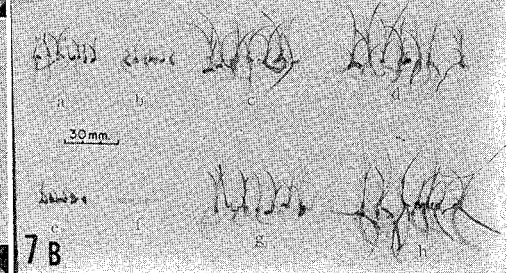 a b c d
30 mm.
e f g h
7 B